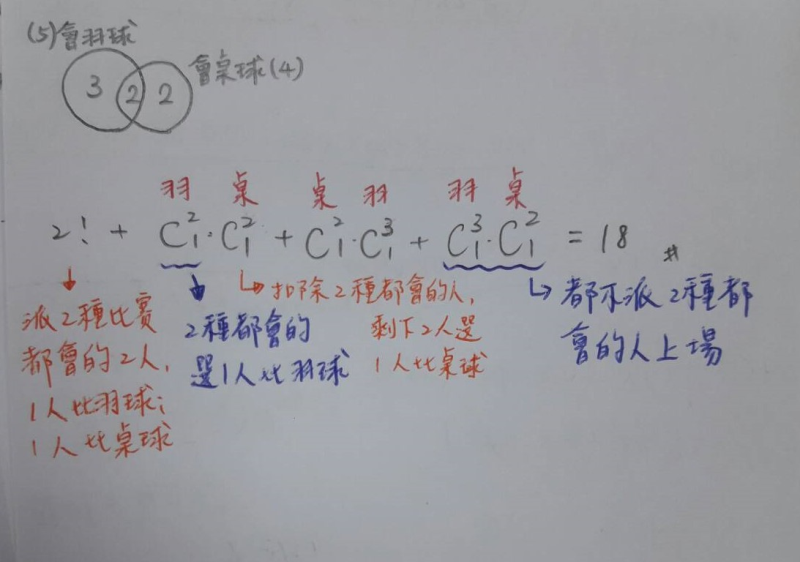 (5)會羽球
會桌球(4)
3 2 2
羽 桌 桌 羽 羽 桌
2! + C²₁·C²₁ + C²₁·C³₁ + C³₁·C²₁ = 18 #
派2種比賽
都會的2人,
1人比羽球;
1人比桌球
2種都會的
選1人比羽球
扣除2種都會的人,
剩下2人選
1人比桌球
都不派2種都
會的人上場